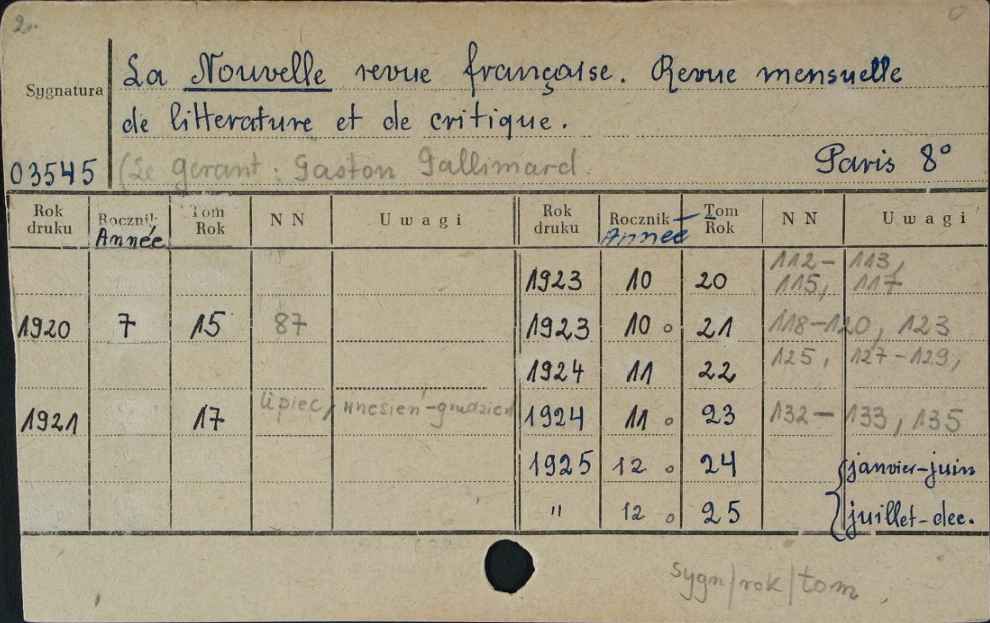 2.
La Nouvelle revue française. Revue mensuelle
Sygnatura
de litterature et de critique.
03545 (Le gerant: Gaston Gallimard. Paris 8°
Rok druku Rocznik Année Tom Rok NN Uwagi Rok druku Rocznik Année Tom Rok NN Uwagi
1923 10 20 112-113, 115, 117
1920 7 15 87 1923 10 o 21 118-120, 123
1924 11 22 125, 127-129,
1921 17 lipiec, wrzesień-grudzień 1924 11 o 23 132-133, 135
1925 12 o 24 janvier-juin
" 12 o 25 juillet-dec.
sygn/rok/tom